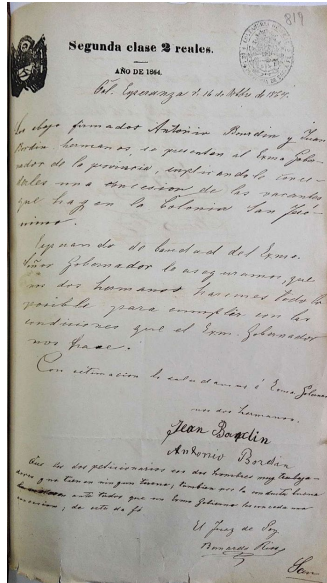 819
Segunda clase 2 reales.
AÑO DE 1864.
Col. Esperanza 16 de 1864.
Los abajo firmados Antonio Bourdin y Juan
Bordin hermanos se presentan al Exmo Gober-
nador de la provincia, implorandole conce-
derles una concecion de las vacantes
que hay en la Colonia San Jero-
nimo.
Esperando de la bondad del Exmo
Señor Gobernador le aseguramos, que
los dos hermanos haremos todo lo
posible para cumplir con las
condiciones que el Exm. Gobernador
nos
Con estimacion le saludamos á Exmo Gober
nos dos hermanos.
Jean Bordin
Antonio Bordin
Que los dos peticionarios son dos hombres muy trabaja-
dores y no tienen ningun terreno, tambien por la conducta buena
ante todos que su Gobierno
de esto da fé
El Juez de Paz
Bernardo
San